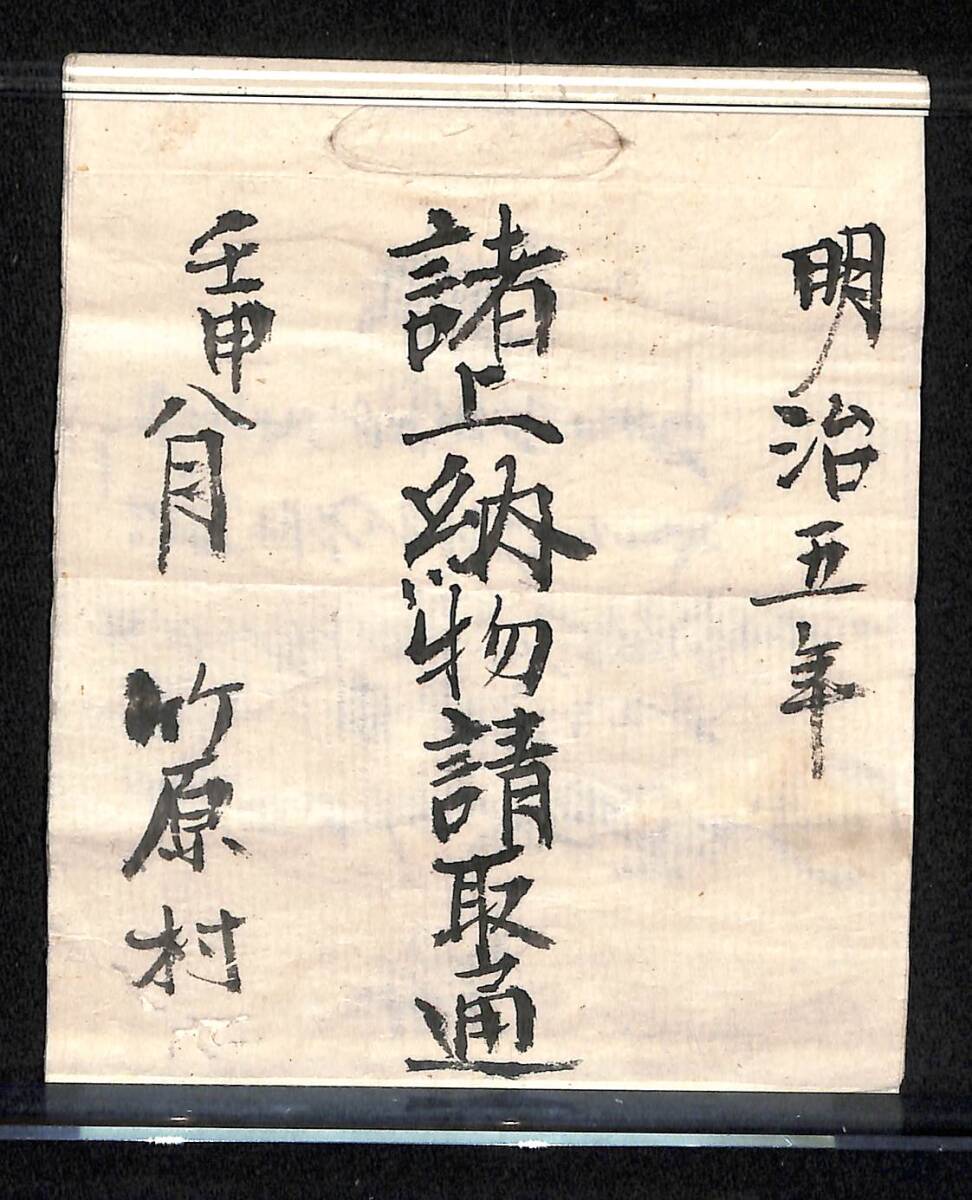 明治五年
諸上納物請取通
壬申八月 竹原村